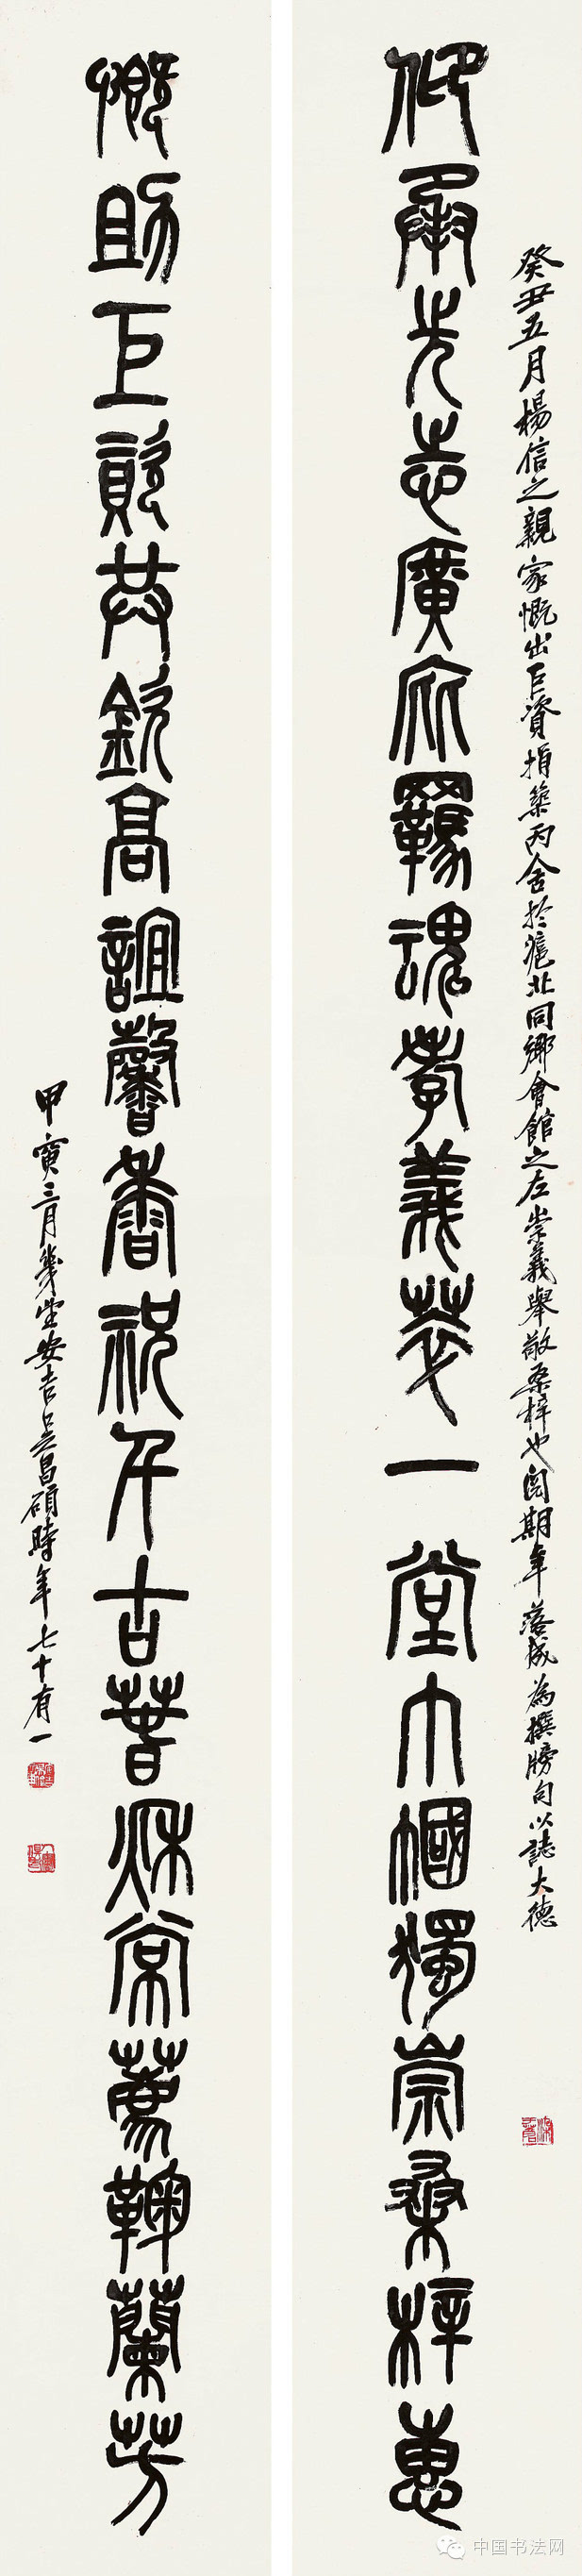 癸丑五月楊信之親家慨出巨資捐築丙舍於滬北同鄉會館之左崇義舉敬桑梓也閱期年落成為撰牓句以誌大德
仰承先志廣庇羈魂孝義萃一堂巾幗獨崇桑梓惠
慨助巨資共欽高誼馨香祝千古春秋常薦鞠蘭芳
甲寅三月幾望安吉吳昌碩時年七十有一
中国书法网